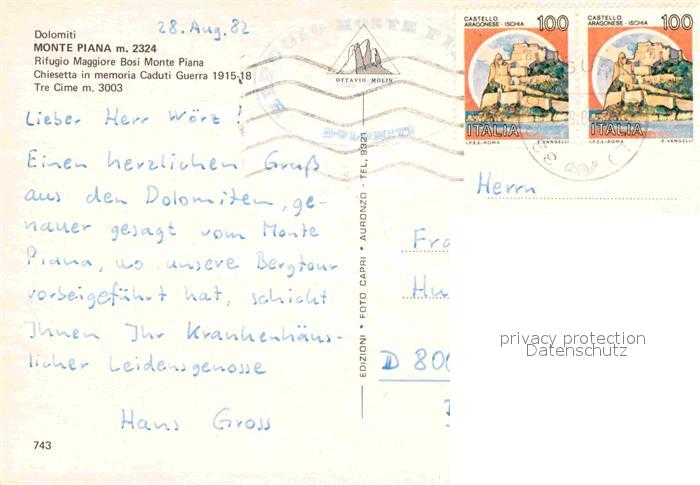 Dolomiti
MONTE PIANA m. 2324
Rifugio Maggiore Bosi Monte Piana
Chiesetta in memoria Caduti Guerra 1915-18
Tre Cime m. 3003
28. Aug. 82
Lieber Herr Wörz!
Einen herzlichen Gruß
aus den Dolomiten, ge-
nauer gesagt vom Monte
Piana, wo unsere Bergtour
vorbeigeführt hat, schickt
Ihnen Ihr Krankenhäus-
licher Leidensgenosse
Hans Gross
743
OTTAVIO MOLIN
DOLOMITI
EDIZIONI * FOTO CAPRI * AURONZO - TEL. 9321
CASTELLO
ARAGONESE - ISCHIA 100
ITALIA
I.P.Z.S.-ROMA E. VANGELLI
CASTELLO
ARAGONESE - ISCHIA 100
ITALIA
I.P.Z.S.-ROMA E. VANGELLI
Herrn
Fra
Hu
D 800
privacy protection
Datenschutz